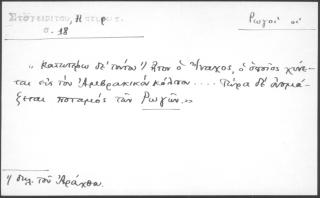 Ρωγοί οἱ
σ. 18
" κατωτέρω δὲ τούτου 1) ἦτον ὁ Ἴναχος, ὁ ὁποῖος χύνε-
ται εἰς τὸν Ἀμβρακικὸν κόλπον .... Τώρα δὲ ὀνομά-
ζεται ποταμὸς τῶν Ρωγῶν. "
1) δηλ. τοῦ Ἀράχθου.